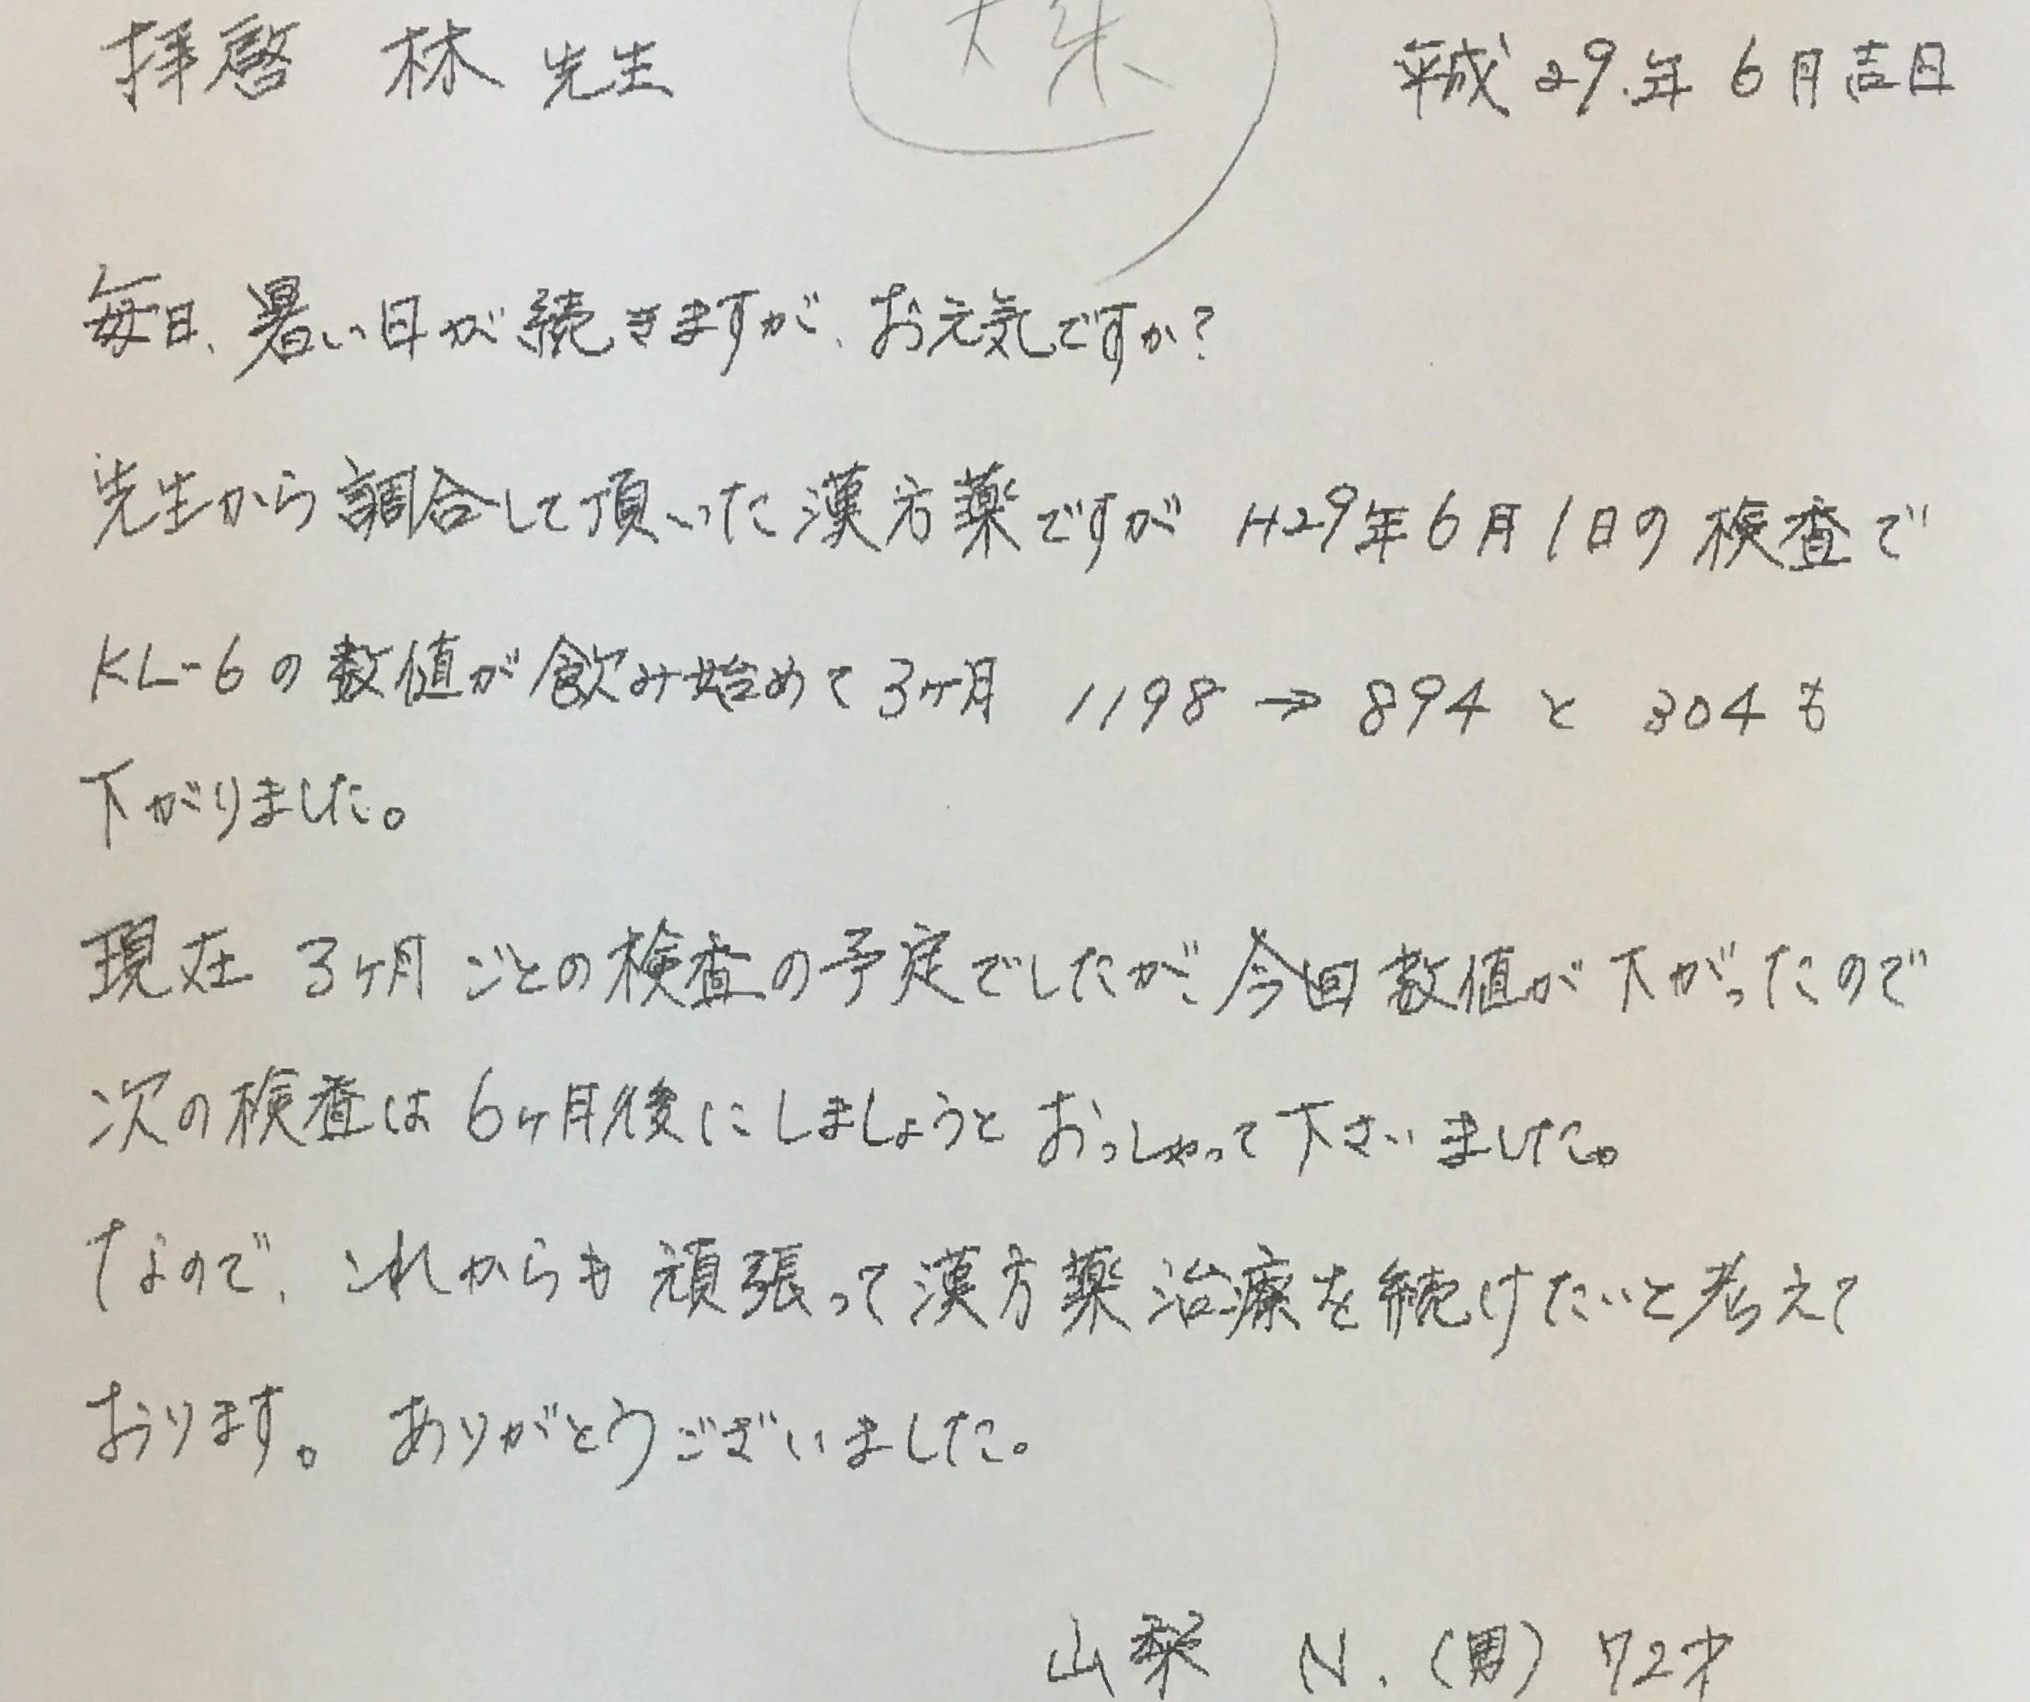 拝啓 林 先生 平成29.年6月吉日
毎日、暑い日が続きますが、お元気ですか?
先生から調合して頂いた漢方薬ですが H29年6月1日の検査で
KL-6の数値が飲み始めて3ヶ月 1198→894 と 304も
下がりました。
現在 3ヶ月ごとの検査の予定でしたが、今回数値が下がったので
次の検査は6ヶ月後にしましょうとおっしゃって下さいました。
なので、これからも頑張って漢方薬治療を続けたいと考えて
おります。ありがとうございました。
山梨 N.(男)72才